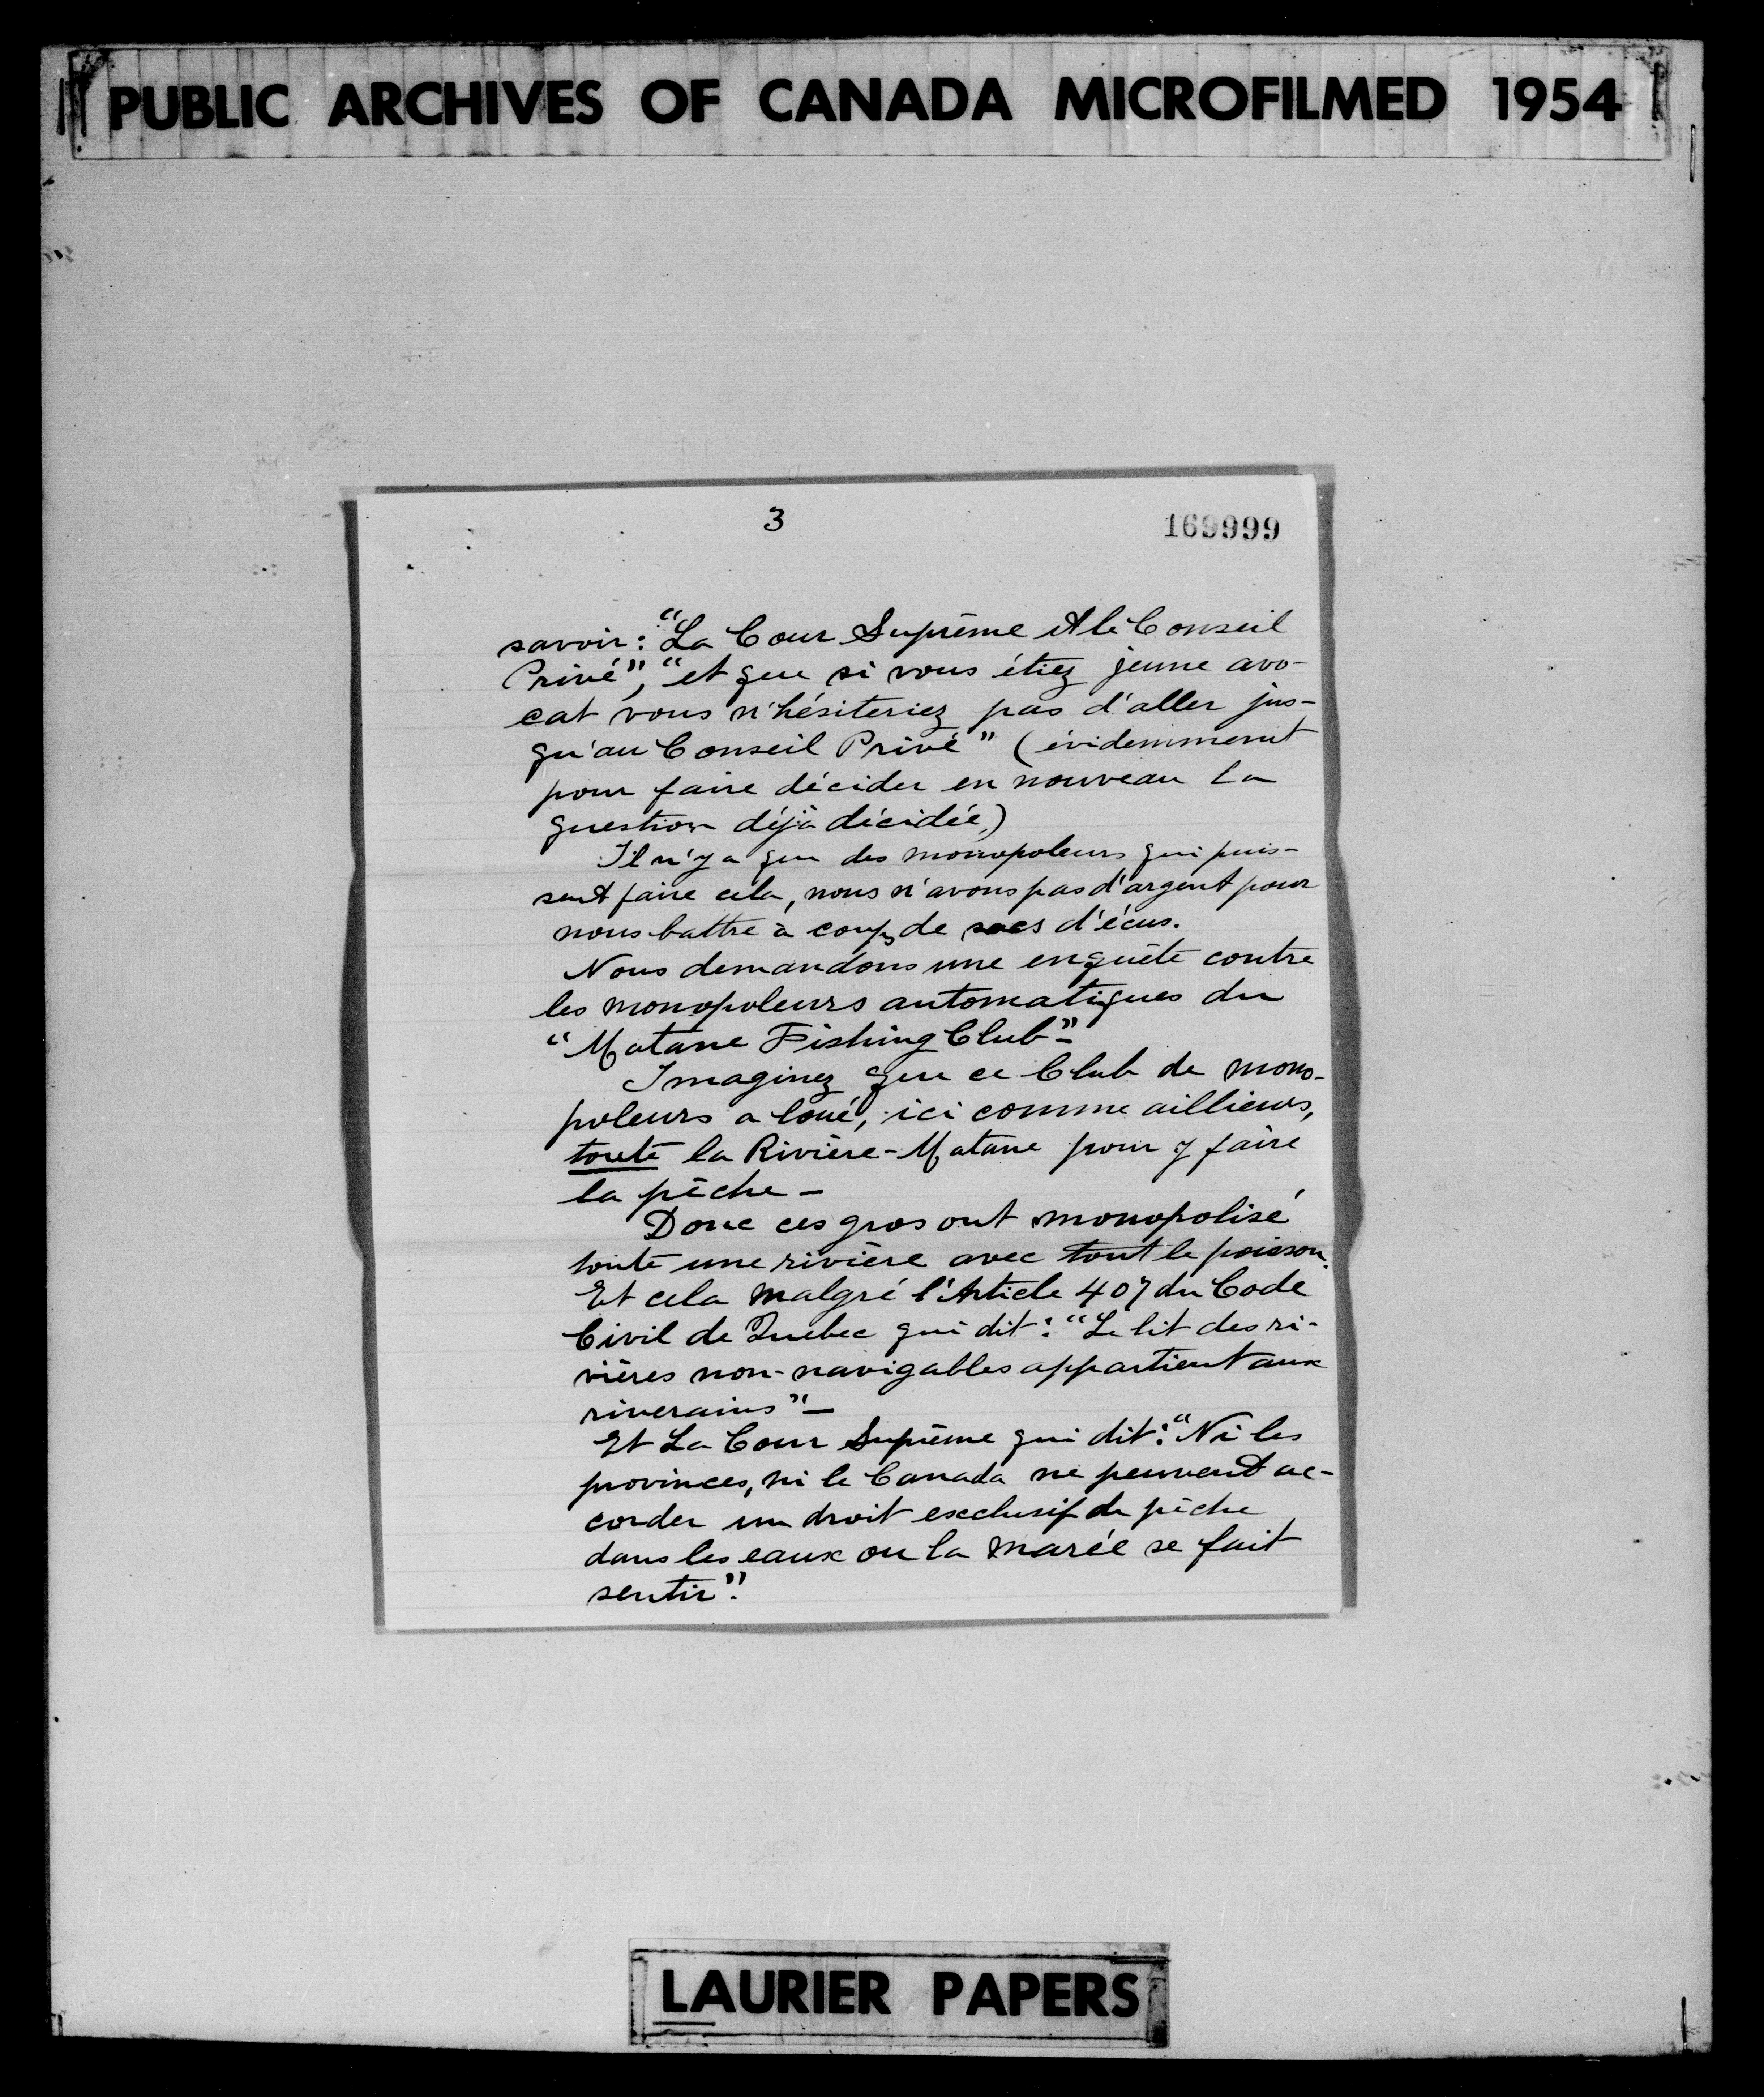 PUBLIC ARCHIVES OF CANADA MICROFILMED 1954
3
169999
savoir: "La Cour Suprême et le Conseil
Privé", "et que si vous étiez jeune avo-
cat vous n'hésiteriez pas d'aller jus-
qu'au Conseil Privé" (évidemment
pour faire décider en nouveau la
question déjà décidée)
Il n'y a que des monopoleurs qui puis-
sent faire cela, nous n'avons pas d'argent pour
nous battre à coups de sacs d'écus.
Nous demandons une enquête contre
les monopoleurs automatiques du
"Matane Fishing Club"-
Imaginez que ce Club de mono-
poleurs a loué, ici comme aillieurs,
toute la Rivière-Matane pour y faire
la pêche -
Donc ces gros ont monopolisé
toute une rivière avec tout le poisson.
Et cela malgré l'Article 407 du Code
Civil de Quebec qui dit: "Le lit des ri-
vières non-navigables appartient aux
riverains" -
Et La Cour Suprême qui dit: "Ni les
provinces, ni le Canada ne peuvent ac-
corder un droit exclusif de pêche
dans les eaux ou la marée se fait
sentir".
LAURIER PAPERS